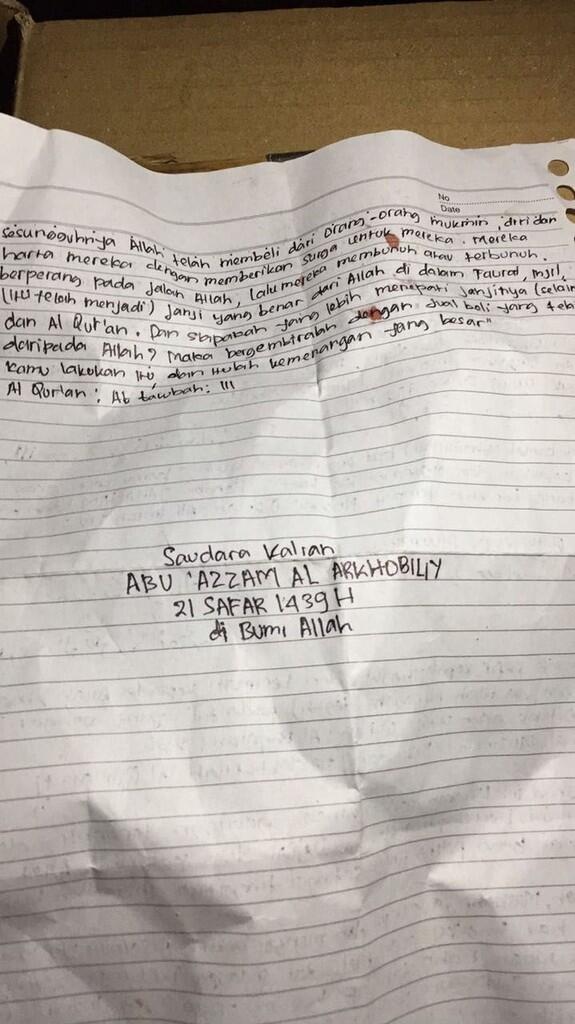 No
Date
Sesungguhnya Allah telah membeli dari orang-orang mukmin, diri dan
harta mereka dengan memberikan surga untuk mereka. Mereka
berperang pada jalan Allah, lalu mereka membunuh atau terbunuh.
(itu telah menjadi) janji yang benar dari Allah di dalam Taurat, Injil,
dan Al Qur'an. Dan siapakah yang lebih menepati janjinya (selain
daripada Allah? Maka bergembiralah dengan jual beli yang tela
kamu lakukan itu, dan itulah kemenangan yang besar"
Al Qur'an : At tawbah : 111
Saudara Kalian
ABU 'AZZAM AL ARKHOBILIY
21 SAFAR 1439 H
di Bumi Allah